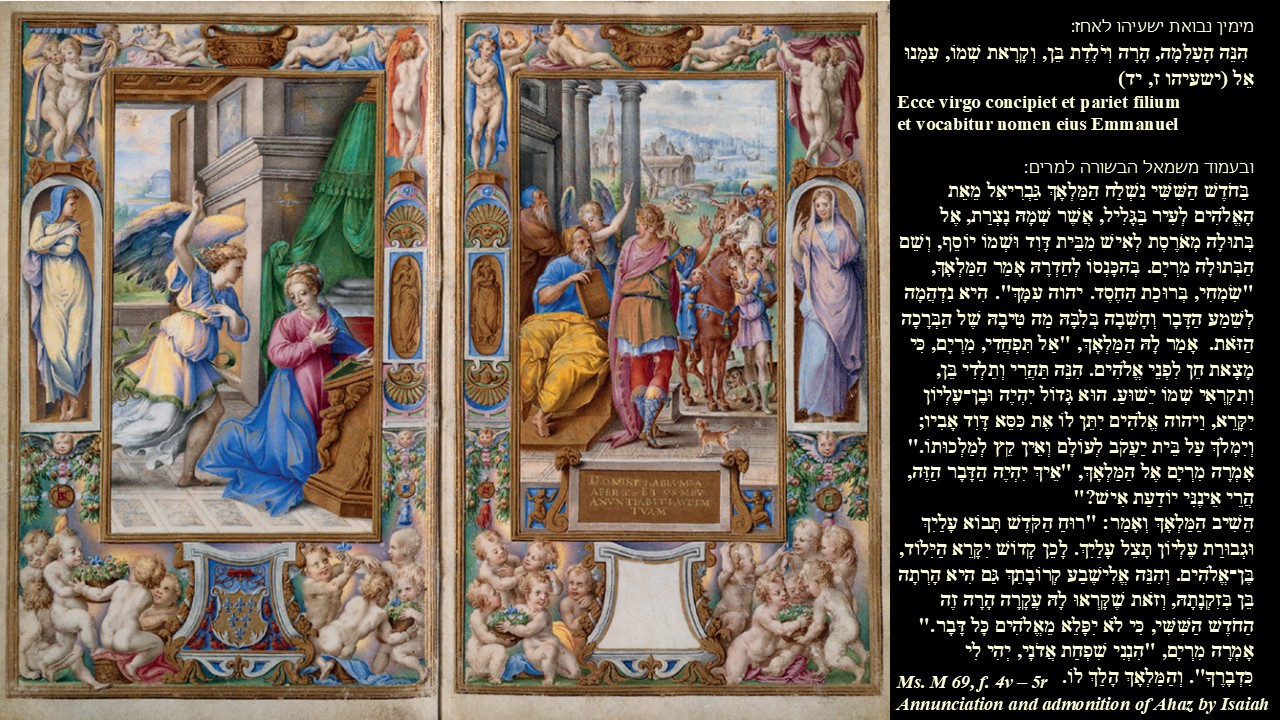 מימין נבואת ישעיהו לאחז:
הִנֵּה הָעַלְמָה, הָרָה וְיֹלֶדֶת בֵּן, וְקָרָאת שְׁמוֹ, עִמָּנוּ
אֵל (ישעיהו ז, יד)
Ecce virgo concipiet et pariet filium
et vocabitur nomen eius Emmanuel
ובעמוד משמאל הבשורה למרים:
בַּחֹדֶשׁ הַשִּׁשִּׁי נִשְׁלַח הַמַּלְאָךְ גַּבְרִיאֵל מֵאֵת
הָאֱלֹהִים לְעִיר בַּגָּלִיל, אֲשֶׁר שְׁמָהּ נָצְרַת, אֶל
בְּתוּלָה מְאֹרֶסֶת לְאִישׁ מִבֵּית דָּוִד וּשְׁמוֹ יוֹסֵף, וְשֵׁם
הַבְּתוּלָה מִרְיָם. בְּהִכָּנְסוֹ לְחַדְרָהּ אָמַר הַמַּלְאָךְ,
"שִׂמְחִי, בְּרוּכַת הַחֶסֶד. יהוה עִמָּךְ". הִיא נִדְהֲמָה
לְשֵׁמַע הַדָּבָר וְחָשְׁבָה בְּלִבָּהּ מַה טִּיבָהּ שֶׁל הַבְּרָכָה
הַזֹּאת. אָמַר לָהּ הַמַּלְאָךְ, "אַל תִּפְחֲדִי, מִרְיָם, כִּי
מָצָאת חֵן לִפְנֵי אֱלֹהִים. הִנֵּה תַּהֲרִי וְתֵלְדִי בֵּן,
וְתִקְרְאִי שְׁמוֹ יֵשׁוּעַ. הוּא גָּדוֹל יִהְיֶה וּבֶן־עֶלְיוֹן
יִקָּרֵא, וַיהוה אֱלֹהִים יִתֵּן לוֹ אֶת כִּסֵּא דָּוִד אָבִיו;
וְיִמְלֹךְ עַל בֵּית יַעֲקֹב לְעוֹלָם וְאֵין קֵץ לְמַלְכוּתוֹ."
אָמְרָה מִרְיָם אֶל הַמַּלְאָךְ, "אֵיךְ יִהְיֶה הַדָּבָר הַזֶּה,
הֲרֵי אֵינֶנִּי יוֹדַעַת אִישׁ?"
הֵשִׁיב הַמַּלְאָךְ וְאָמַר: "רוּחַ הַקֹּדֶשׁ תָּבוֹא עָלַיִךְ
וּגְבוּרַת עֶלְיוֹן תָּצֵל עָלַיִךְ. לָכֵן קָדוֹשׁ יִקָּרֵא הַיִּלּוֹד,
בֶּן־אֱלֹהִים. וְהִנֵּה אֱלִישֶׁבַע קְרוֹבָתֵךְ גַּם הִיא הָרְתָה
בֵּן בְּזִקְנָתָהּ, וְזֹאת שֶׁקָּרְאוּ לָהּ עֲקָרָה הָרָה זֶה
הַחֹדֶשׁ הַשִּׁשִּׁי, כִּי לֹא יִפָּלֵא מֵאֱלֹהִים כָּל דָּבָר."
אָמְרָה מִרְיָם, "הִנְנִי שִׁפְחַת אֲדֹנָי, יְהִי לִי
כִּדְבָרֶךָ". וְהַמַּלְאָךְ הָלַךְ לוֹ.
Ms. M 69, f. 4v – 5r
Annunciation and admonition of Ahaz by Isaiah
DOMINE LABIUM
APERIES ET OS MEU
ANVNTIABIT LAUDEM
TVAM